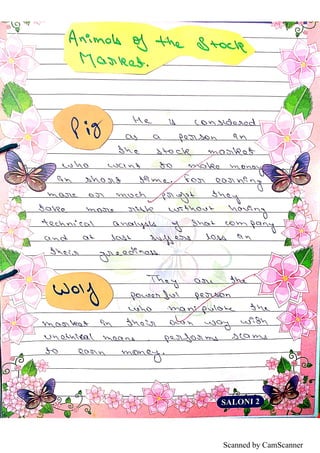 Animals of the Stock
Market.
Pig
He is considered
as a person in
the stock market
who want to make money
in short time for earning
more or much profit they
take more risk without having
technical analysis of that company
and at last suffers loss in
their greediness
Wolf
They are the
powerful person
who manipulate the
market in their own way with
unethical means performs scams
to earn money.
SALONI 2
Scanned by CamScanner